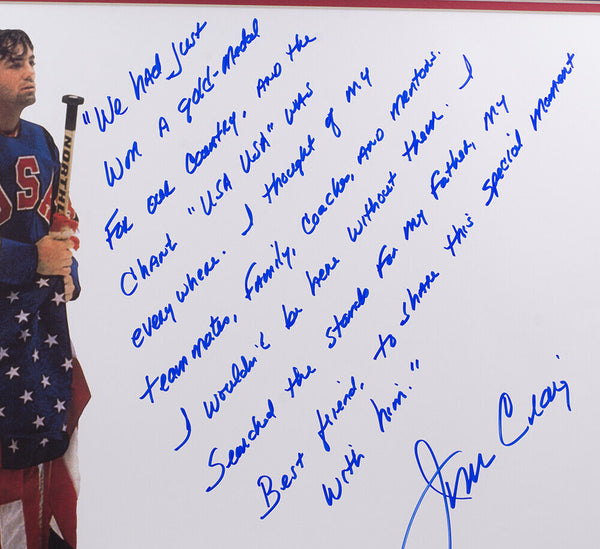 "We had just
won a gold-medal
for our country, and the
chant "USA USA" was
everywhere. I thought of my
teammates, family, coaches, and mentors.
I wouldn't be here without them. I
searched the stands for my father, my
Best friend, to share this special moment
with him."
Jim Craig
USA
NORTHL